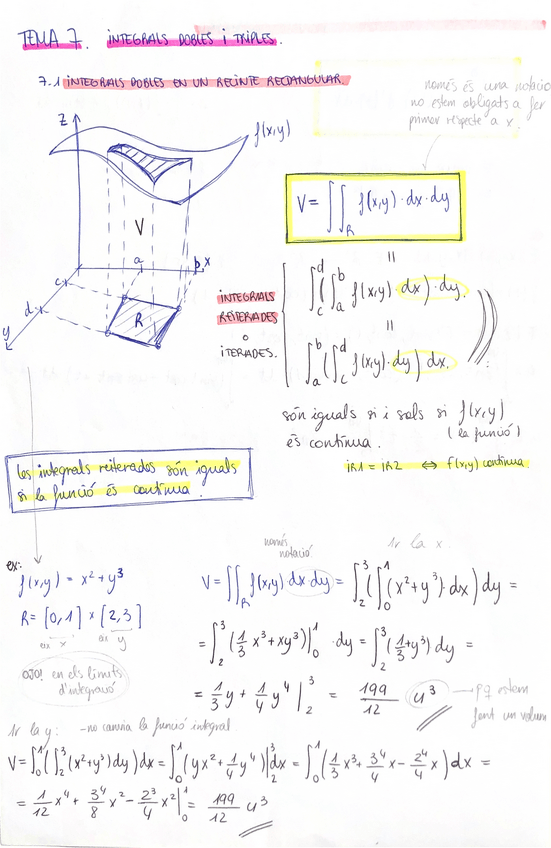 TEMA 7. INTEGRALS DOBLES I TRIPLES.
7.1 INTEGRALS DOBLES EN UN RECINTE RECTANGULAR.
només és una notació
no estem obligats a fer
primer respecte a x.
z
f(x,y)
V
a
b
x
c
d
R
y
V = ∬_R f(x,y)·dx·dy
=
INTEGRALS
REITERADES
o
ITERADES.
∫_c^d (∫_a^b f(x,y)·dx)·dy.
=
∫_a^b (∫_c^d f(x,y)·dy) dx.
són iguals si i sols si f(x,y)
(la funció)
és contínua.
iR1 = iR2 ⇔ f(x,y) contínua.
les integrals reiterades són iguals
si la funció és contínua.
ex:
f(x,y) = x² + y³
R = [0,1] × [2,3]
en x en y
OJO! en els límits
d'integració
només
notació
1r la x.
V = ∬_R f(x,y) dx dy = ∫_2^3 (∫_0^1 (x²+y³)·dx) dy =
= ∫_2^3 (1/3 x³ + xy³)|_0^1 · dy = ∫_2^3 (1/3 + y³) dy =
= 1/3 y + 1/4 y⁴ |_2^3 = 199/12 u³
pq estem
fent un volum
1r la y: - no canvia la funció integral.
V = ∫_0^1 (∫_2^3 (x²+y³) dy) dx = ∫_0^1 (yx² + 1/4 y⁴)|_2^3 dx = ∫_0^1 (1/3 x³ + 3⁴/4 x − 2⁴/4 x) dx =
= 1/12 x⁴ + 3⁴/8 x² − 2³/4 x² |_0^1 = 199/12 u³